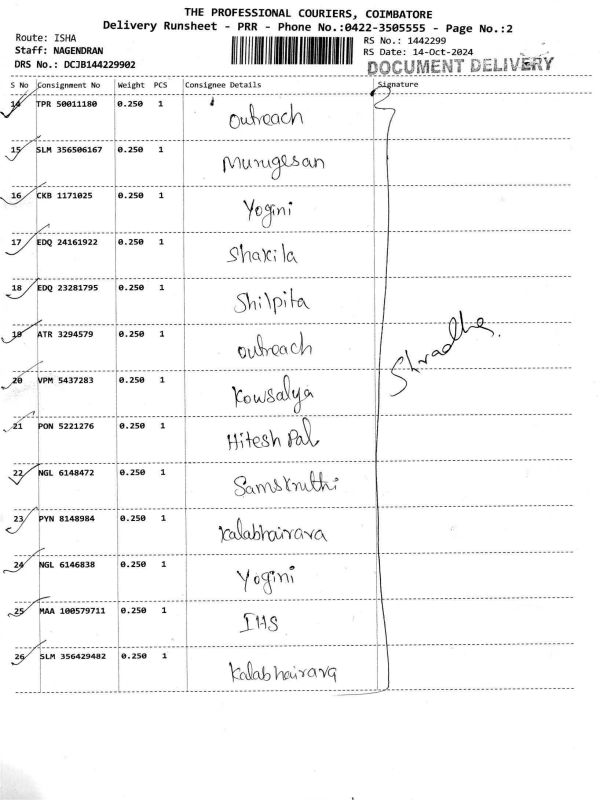 THE PROFESSIONAL COURIERS, COIMBATORE
Delivery Runsheet - PRR - Phone No.:0422-3505555 - Page No.:2
Route: ISHA
RS No.: 1442299
Staff: NAGENDRAN
RS Date: 14-Oct-2024
DRS No.: DCJB144229902
DOCUMENT DELIVERY
S No Consignment No Weight PCS Consignee Details Signature
14 TPR 50011180 0.250 1 Outreach
15 SLM 356506167 0.250 1 Murugesan
16 CKB 1171025 0.250 1 Yogini
17 EDQ 24161922 0.250 1 Shakila
18 EDQ 23281795 0.250 1 Shilpita
19 ATR 3294579 0.250 1 outreach
Shradha.
20 VPM 5437283 0.250 1 Kowsalya
21 PON 5221276 0.250 1 Hitesh Pal
22 NGL 6148472 0.250 1 Samskruthi
23 PYN 8148984 0.250 1 Kalabhairava
24 NGL 6146838 0.250 1 Yogini
25 MAA 100579711 0.250 1 IHS
26 SLM 356429482 0.250 1 Kalabhairava